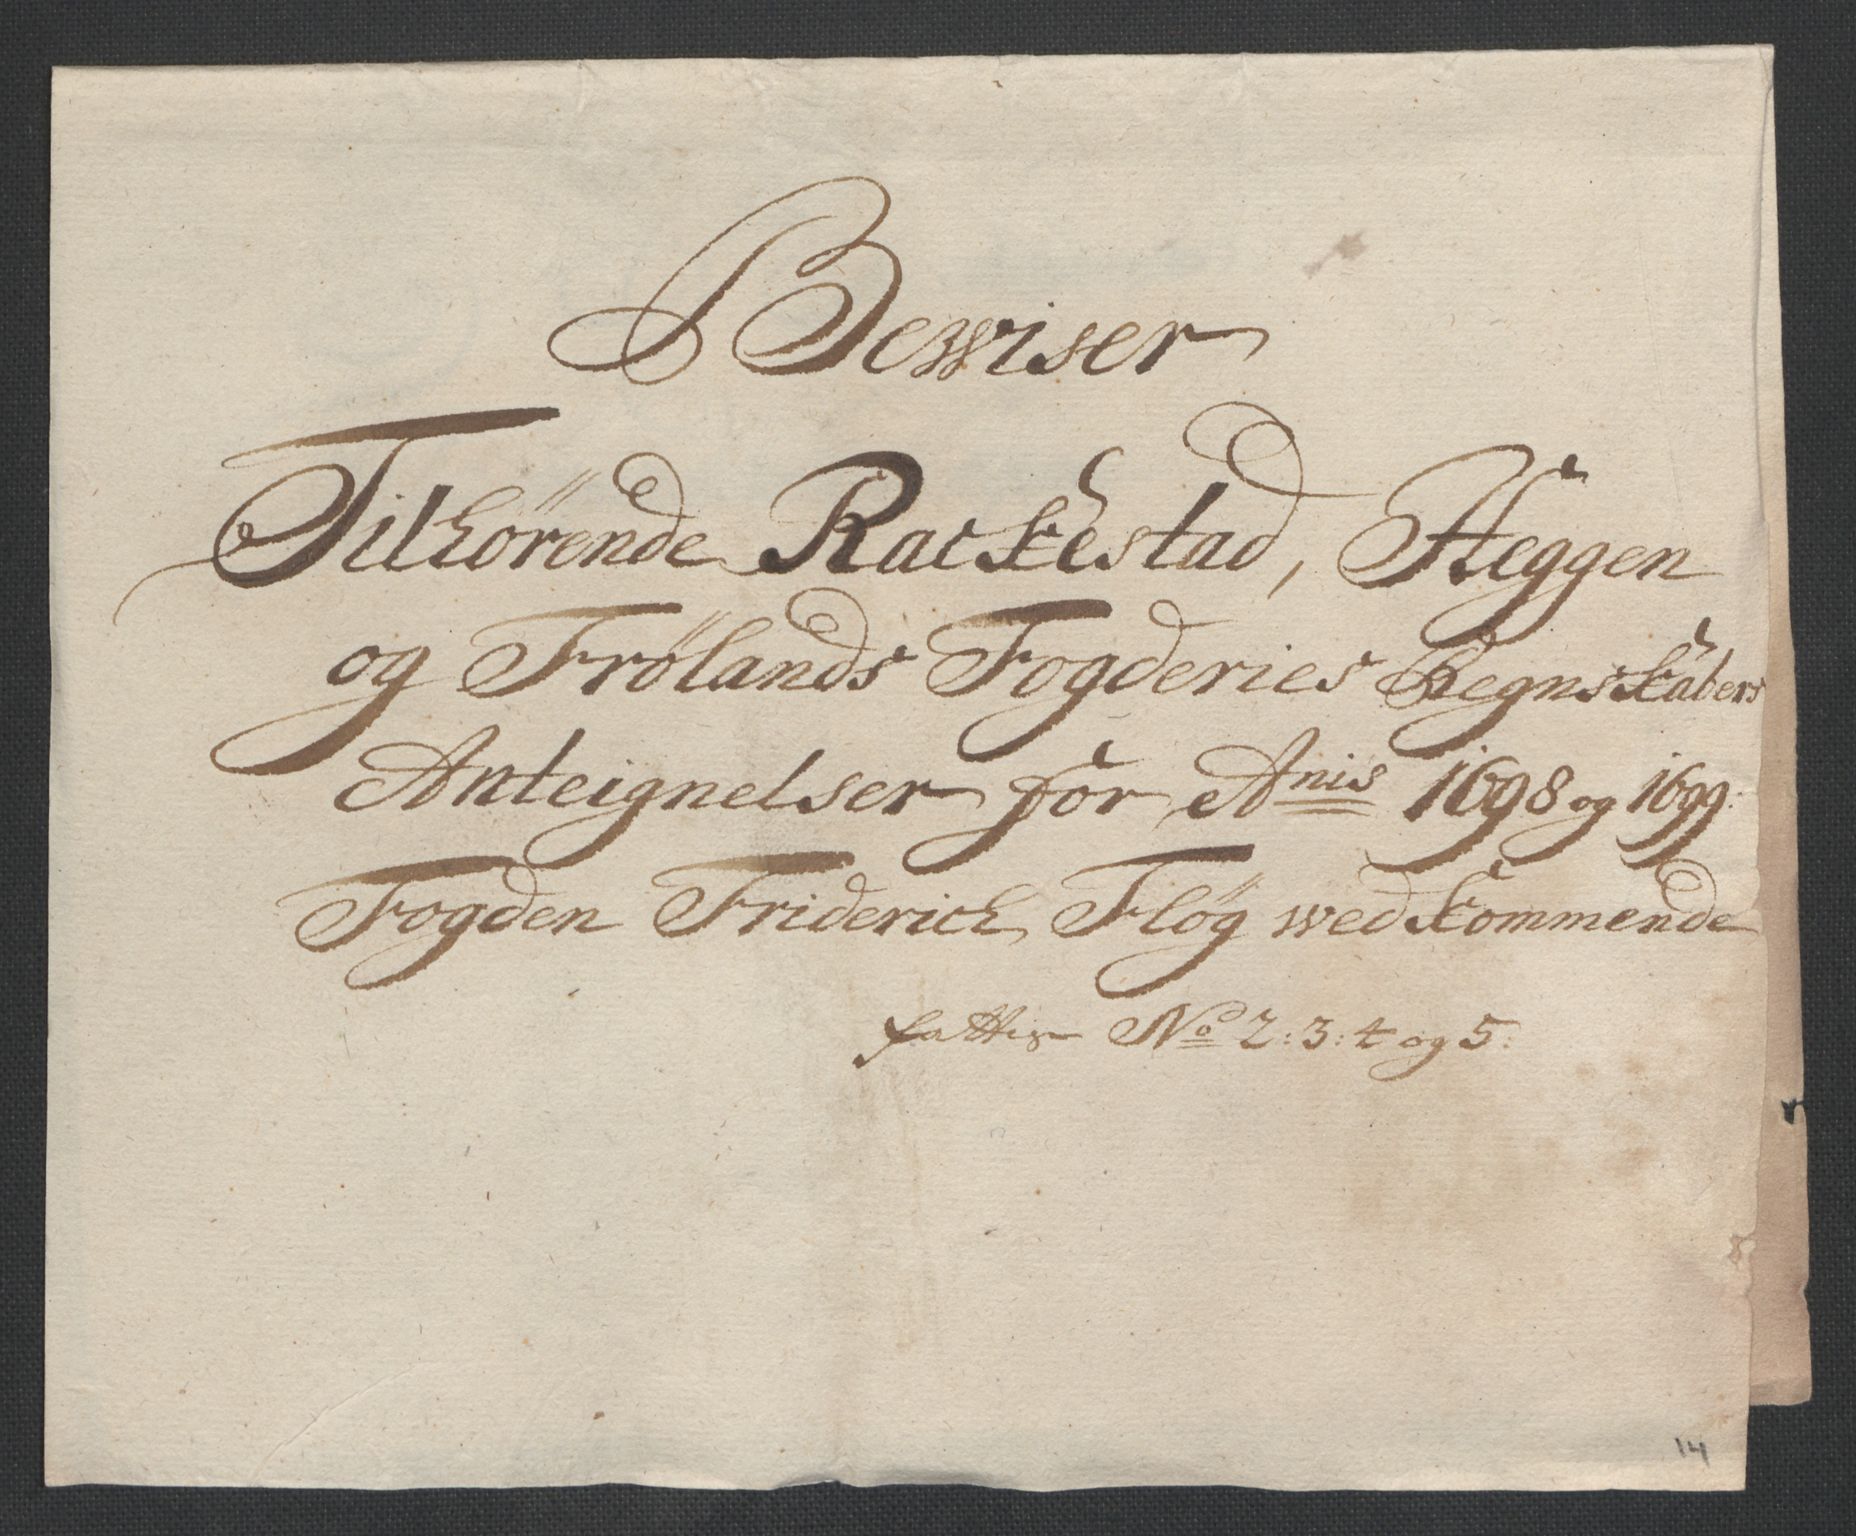 Bewiser
Tilhörende Rackestad, Heggen
og Frölands Fogderies Regnskabers
Anteignelser for Anis 1698 og 1699.
Fogden Friderich Fløg wedkommende
No 2: 3: 4 og 5:
14